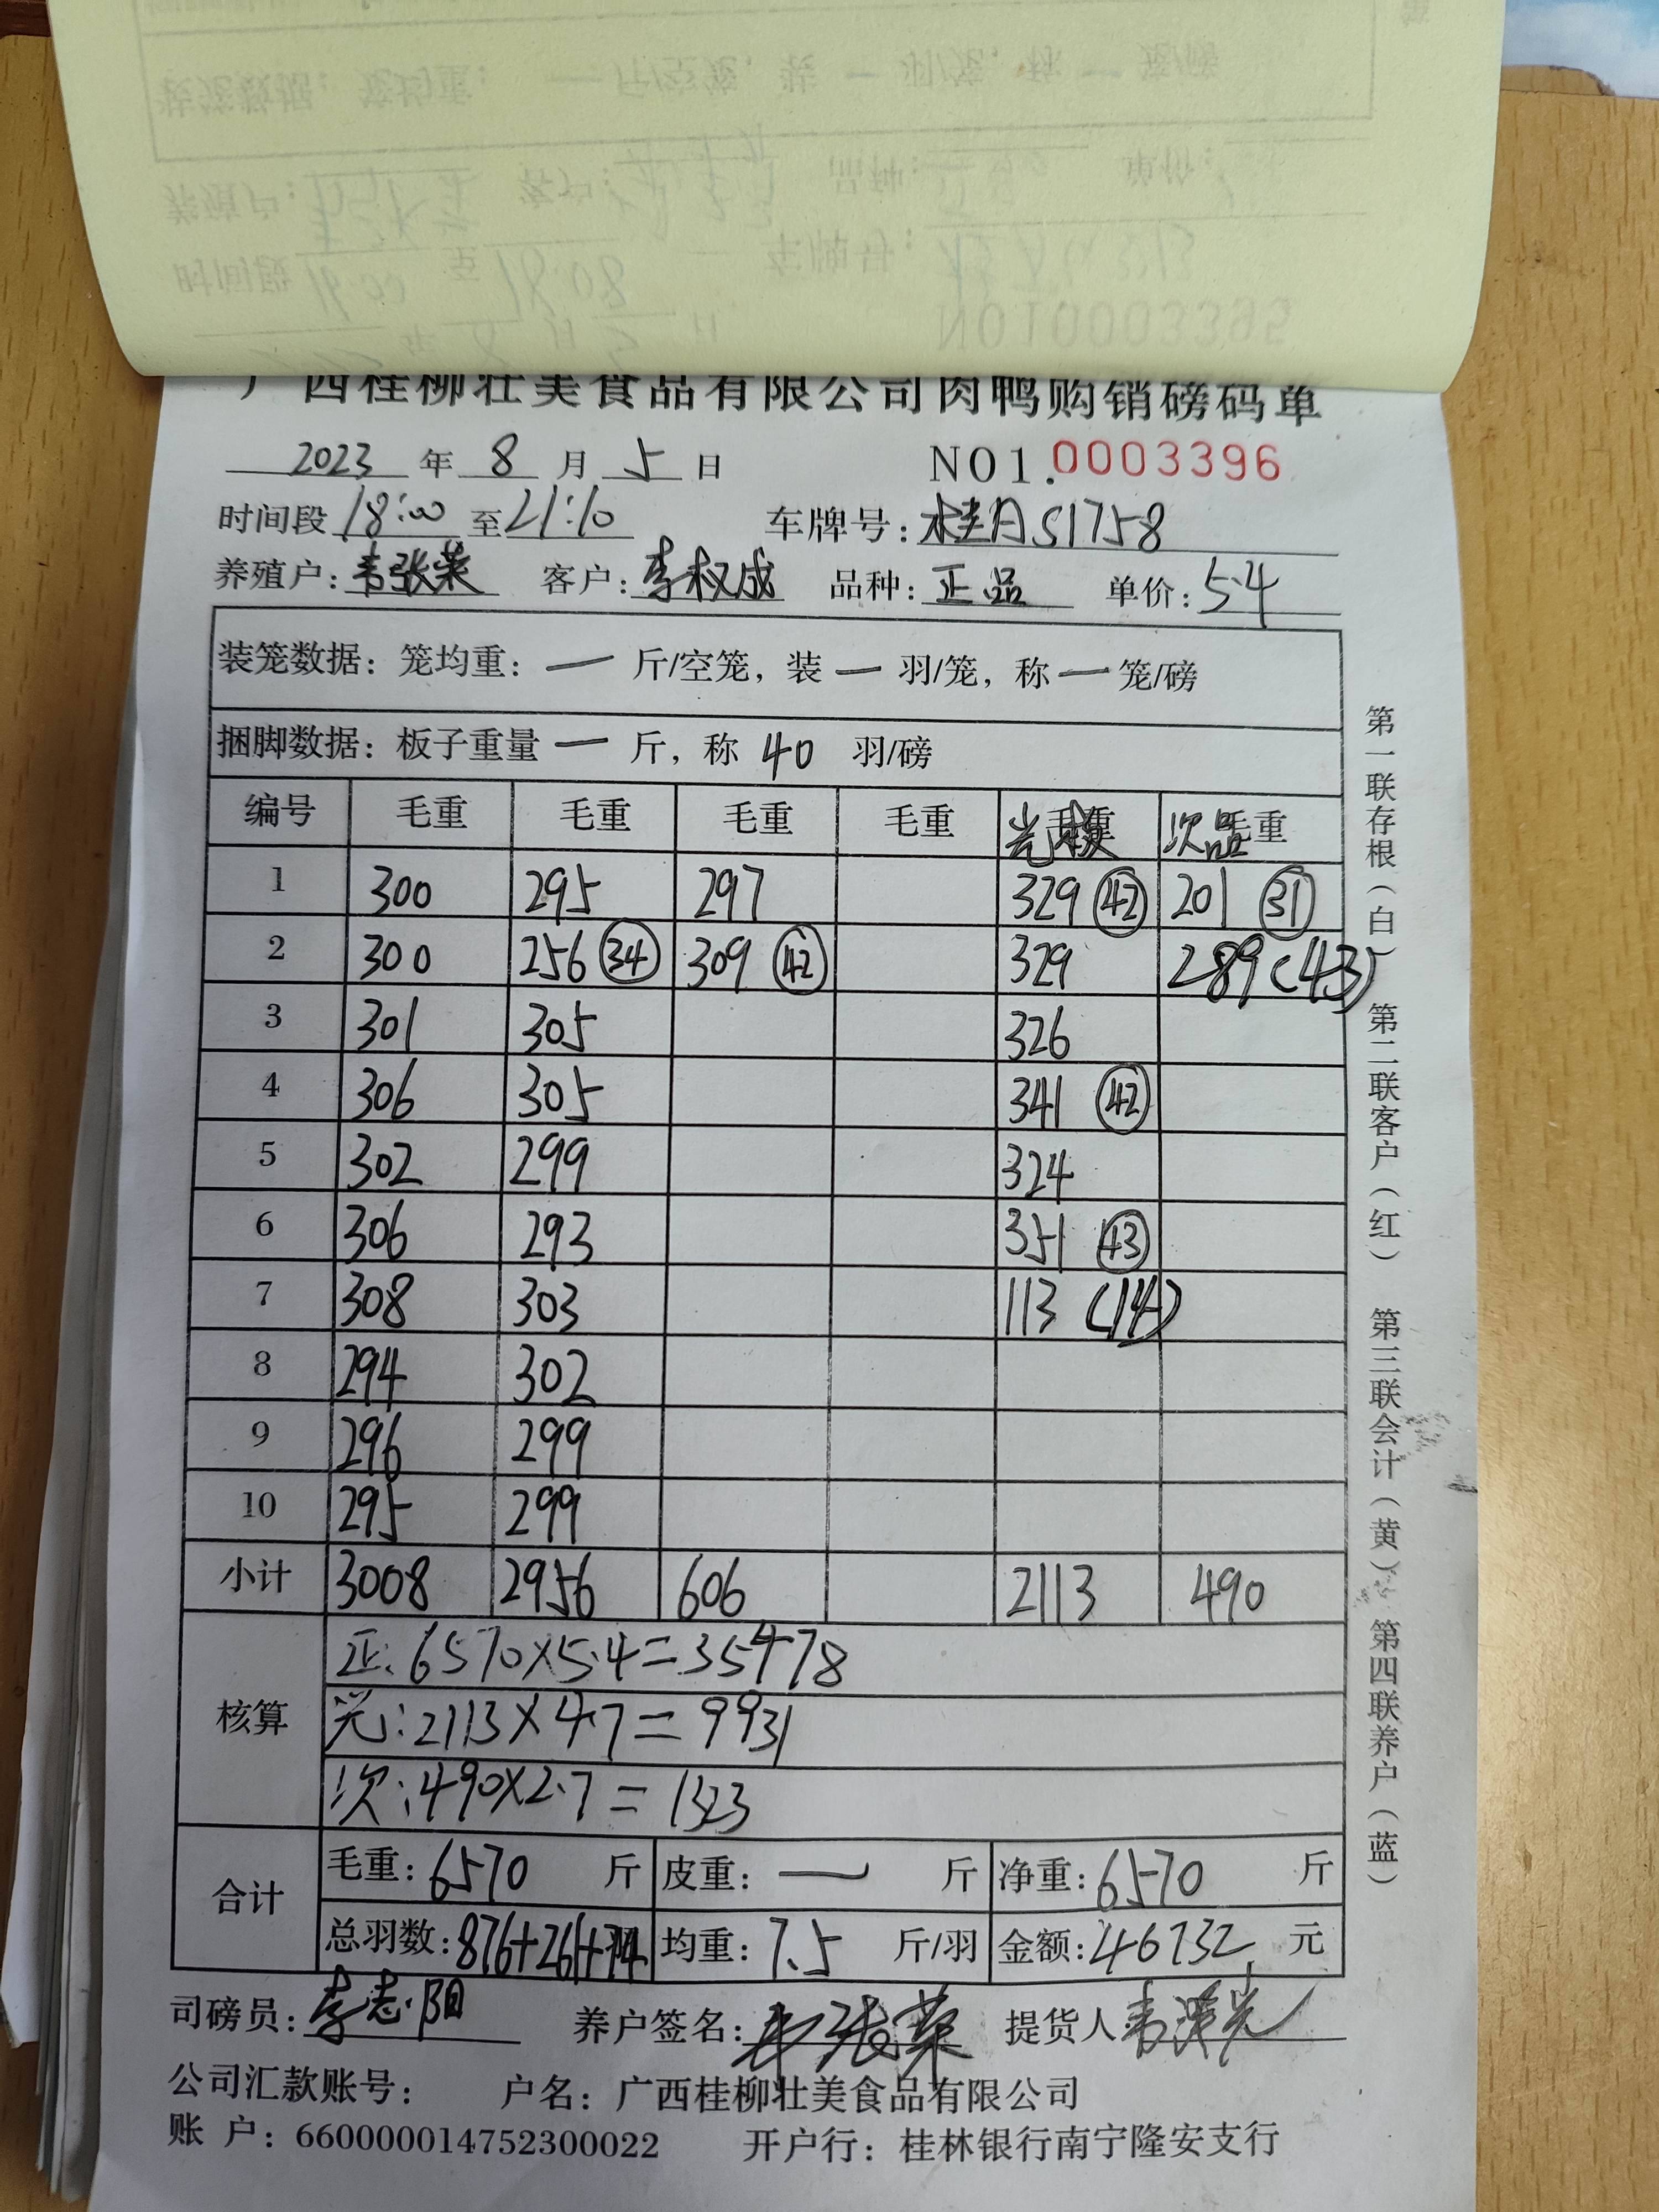 广西桂柳壮美食品有限公司肉鸭购销磅码单
2023 年 8 月 5 日 NO1.0003396
时间段 18:00 至 21:10 车牌号: 桂AS1758
养殖户: 韦张荣 客户: 李权成 品种: 正品 单价: 5.4
装笼数据: 笼均重: — 斤/空笼, 装 — 羽/笼, 称 — 笼/磅
捆脚数据: 板子重量 — 斤, 称 40 羽/磅
编号 毛重 毛重 毛重 毛重 毛重 次品 毛重
1 300 295 297 329 (42) 201 (31)
2 300 256 (34) 309 (42) 329 289 (43)
3 301 305 326
4 306 305 341 (42)
5 302 299 324
6 306 293 351 (43)
7 308 303 113 (14)
8 294 302
9 296 299
10 295 299
小计 3008 2956 606 2113 490
核算
正: 6570×5.4=35478
光: 2113×4.7=9931
次: 490×2.7=1323
合计
毛重: 6570 斤 皮重: — 斤 净重: 6570 斤
总羽数: 876+261+74 均重: 7.5 斤/羽 金额: 46732 元
司磅员: 李志阳 养户签名: 韦张荣 提货人 韦
公司汇款账号: 户名: 广西桂柳壮美食品有限公司
账 户: 660000014752300022 开户行: 桂林银行南宁隆安支行
第一联存根(白) 第二联客户(红) 第三联会计(黄) 第四联养户(蓝)